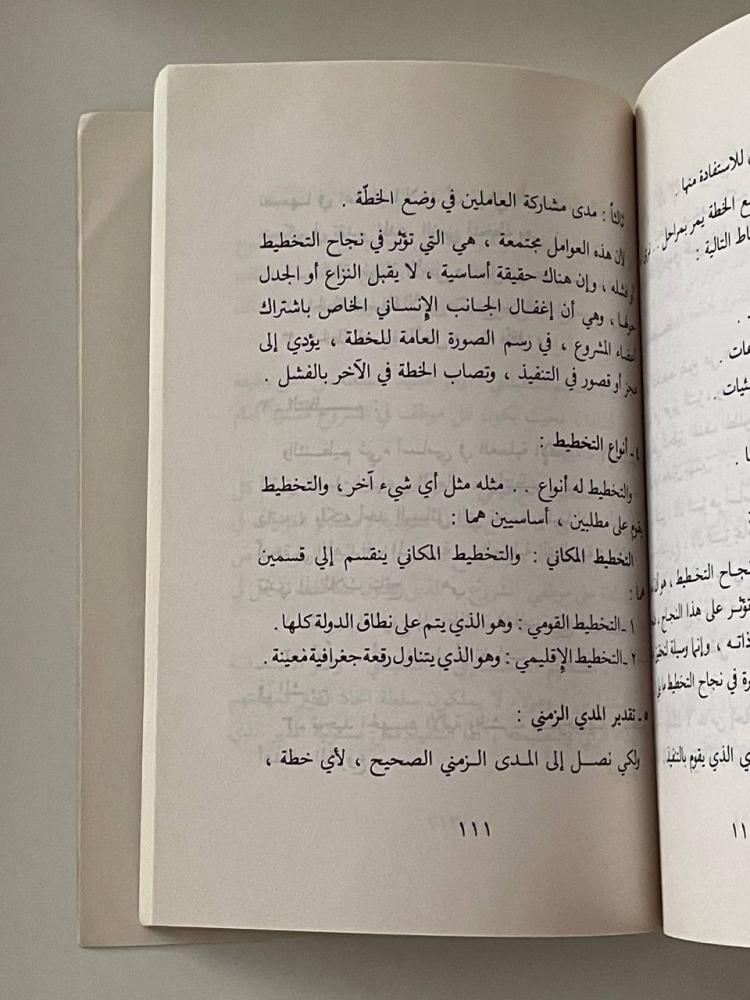 للاستفادة منها .
ع الخطة يمر بمراحل . .
ط التالية :
نجاح التخطيط ،
تؤثر على هذا النجاح ،
ذاته ، وإنما وسيلة
رة في نجاح التخطيط
ي الذي يقوم بالتنفيذ .
١١
ثالثاً : مدى مشاركة العاملين في وضع الخطّة .
لأن هذه العوامل مجتمعة ، هي التي تؤثر في نجاح التخطيط
أو فشله ، وإن هناك حقيقة أساسية ، لا يقبل النزاع أو الجدل
حولها ، وهي أن إغفال الجانب الإنساني الخاص باشتراك
أعضاء المشروع ، في رسم الصورة العامة للخطة ، يؤدي إلى
عجز أو قصور في التنفيذ ، وتصاب الخطة في الآخر بالفشل .
٤ ـ أنواع التخطيط :
والتخطيط له أنواع . . مثله مثل أي شيء آخر ، والتخطيط
يقوم على مطلبين ، أساسيين هما :
التخطيط المكاني : والتخطيط المكاني ينقسم إلي قسمين
هما :
١ ـ التخطيط القومي : وهو الذي يتم على نطاق الدولة كلها .
٢ ـ التخطيط الإقليمي : وهو الذي يتناول رقعة جغرافية معينة .
٥ ـ تقدير المدي الزمني :
ولكي نصل إلى المدى الزمني الصحيح ، لأي خطة ،
١١١